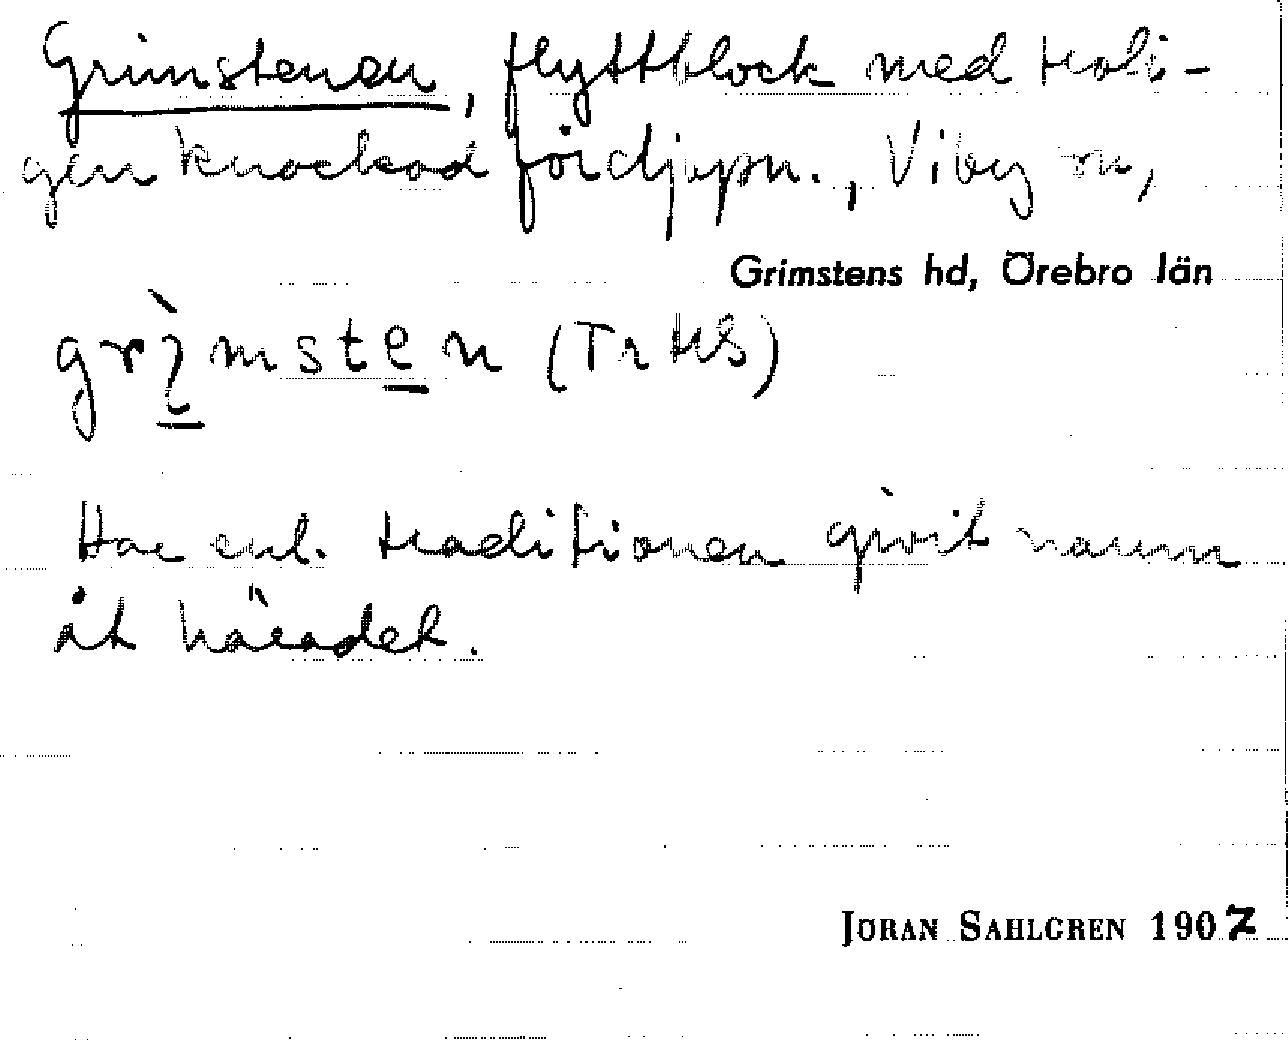 Grimstenen, flyttblock med troli-
gen knackad fördjupn., Viby sn,
Grimstens hd, Örebro län
grìmsten (Tr HS)
Har enl. traditionen givit namn
åt häradet.
JÖRAN SAHLGREN 1907